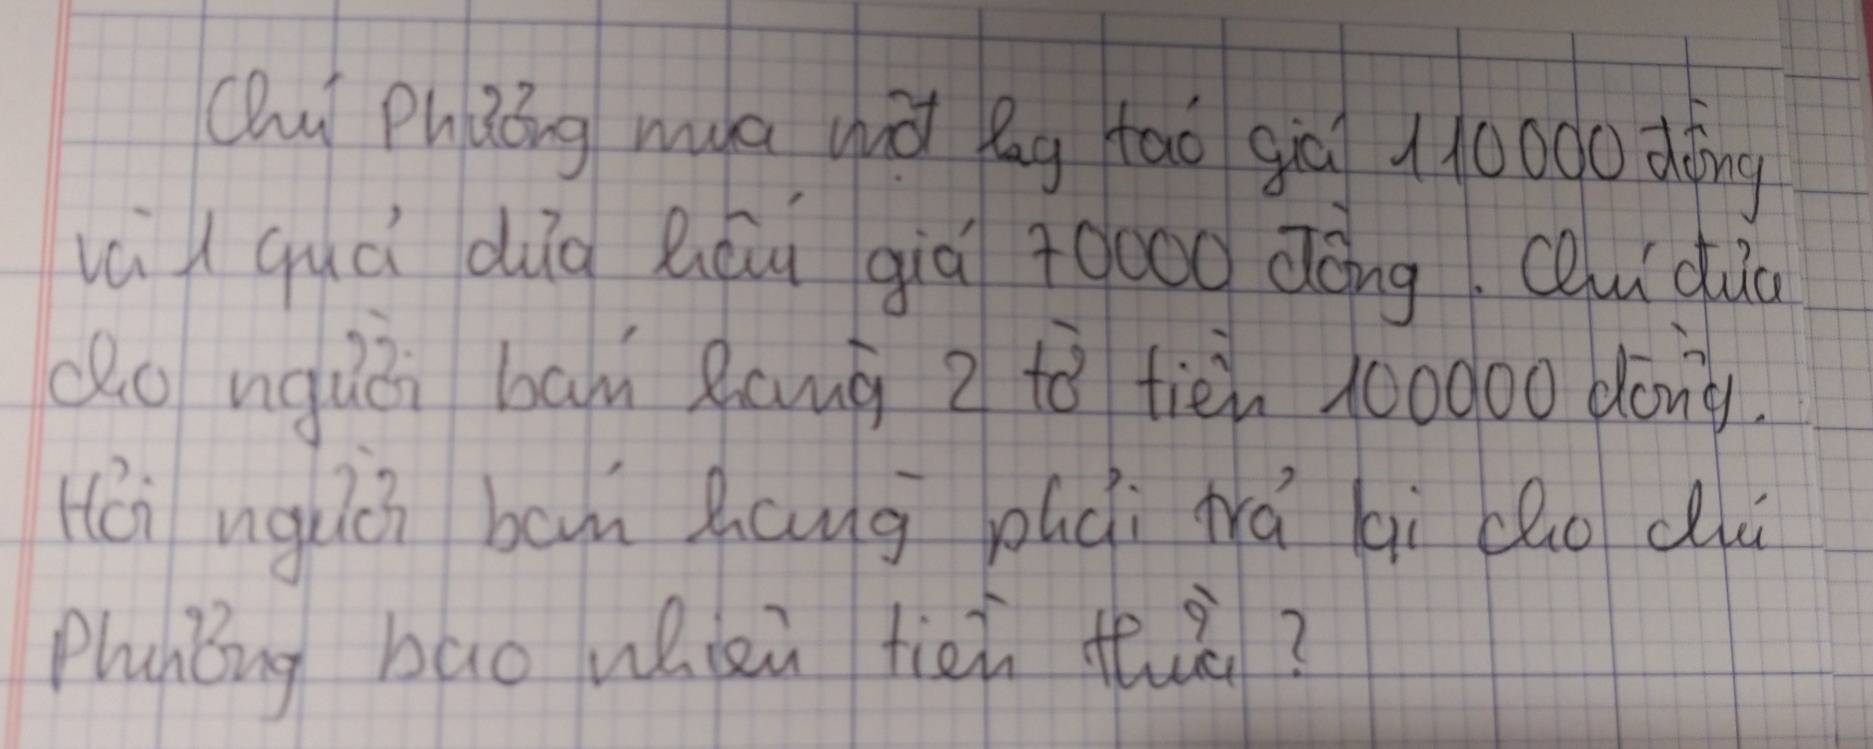 Chú Phương mua một kg táo giá 110000 đồng
và 1 quả dưa hấu giá 70000 đồng. Chú đưa
cho người bán hàng 2 tờ tiền 100000 đồng.
Hỏi người bán hàng phải trả lại cho chú
Phương bao nhiêu tiền thừa?